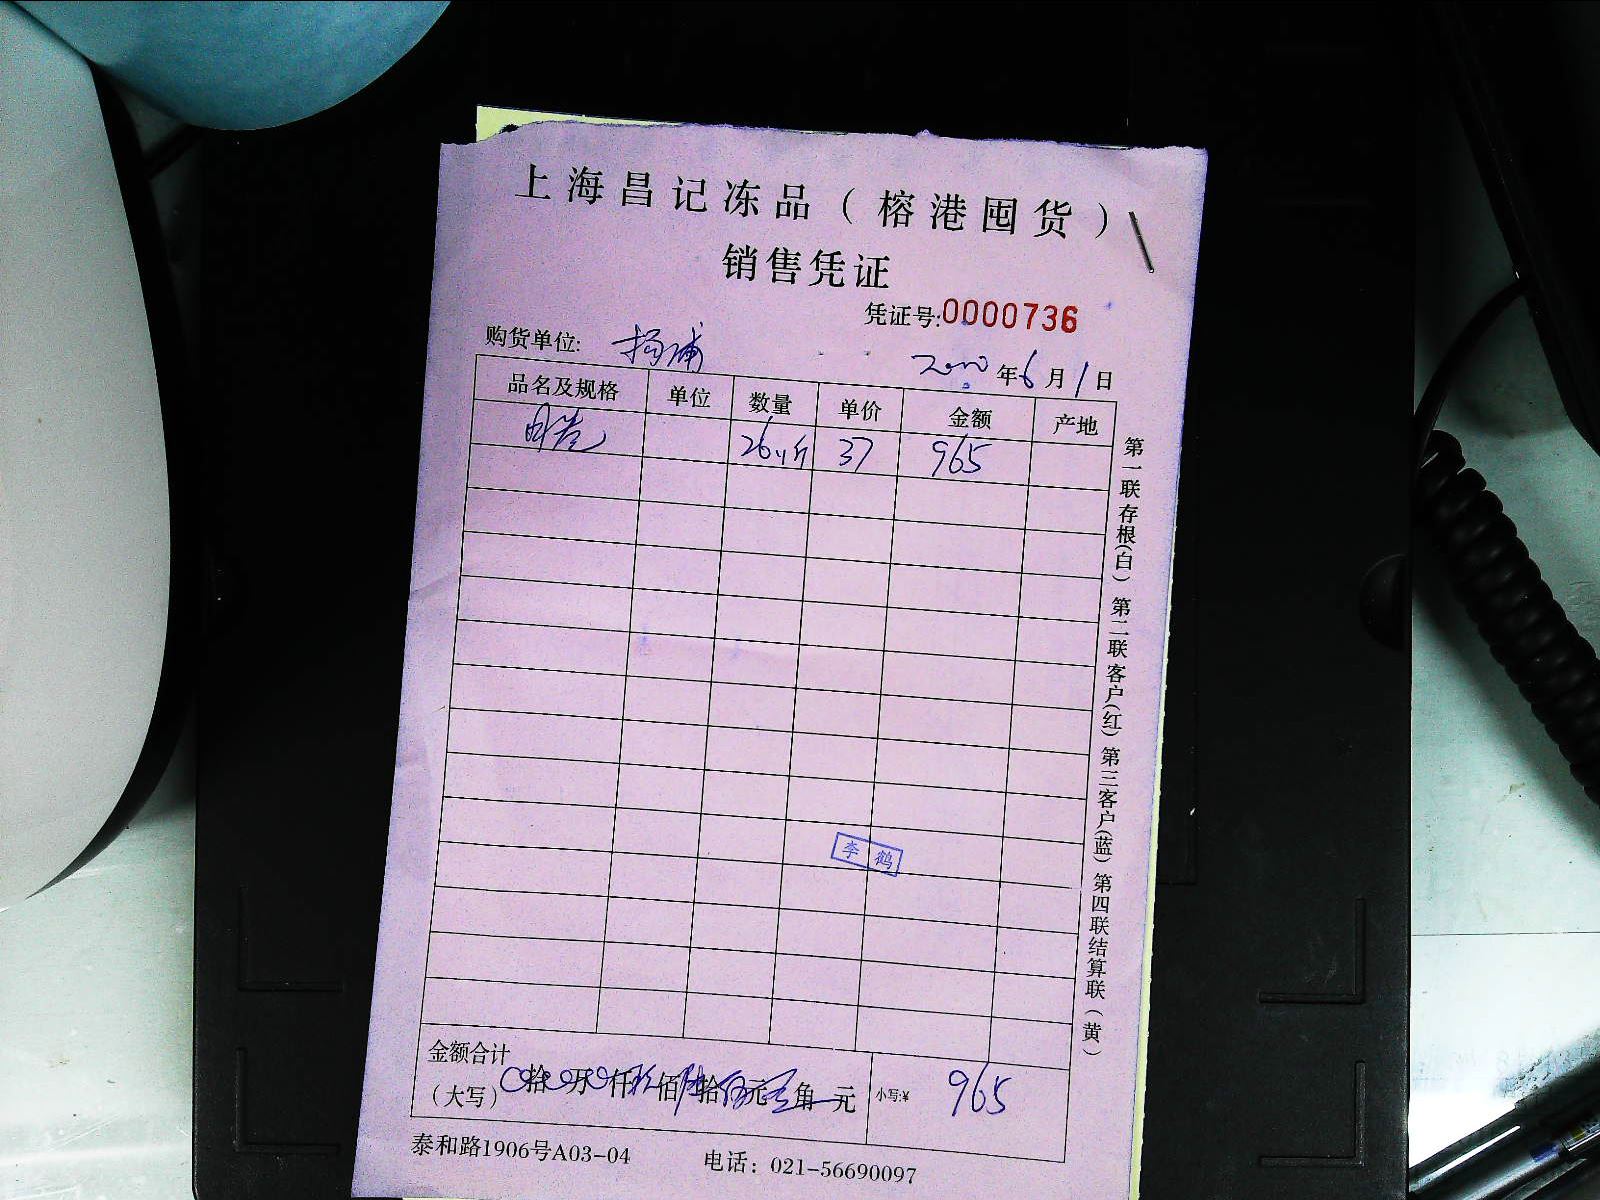 上海昌记冻品（榕港囤货）
销售凭证
凭证号:0000736
购货单位: 杨浦
年6月1日
品名及规格 单位 数量 单价 金额 产地
37 965
第一联存根(白) 第二联客户(红) 第三客户(蓝) 第四联结算联(黄)
李鹤
金额合计
（大写） 拾 万 仟 玖佰 陆拾 伍元 角 元 小写:¥ 965
泰和路1906号A03-04 电话：021-56690097